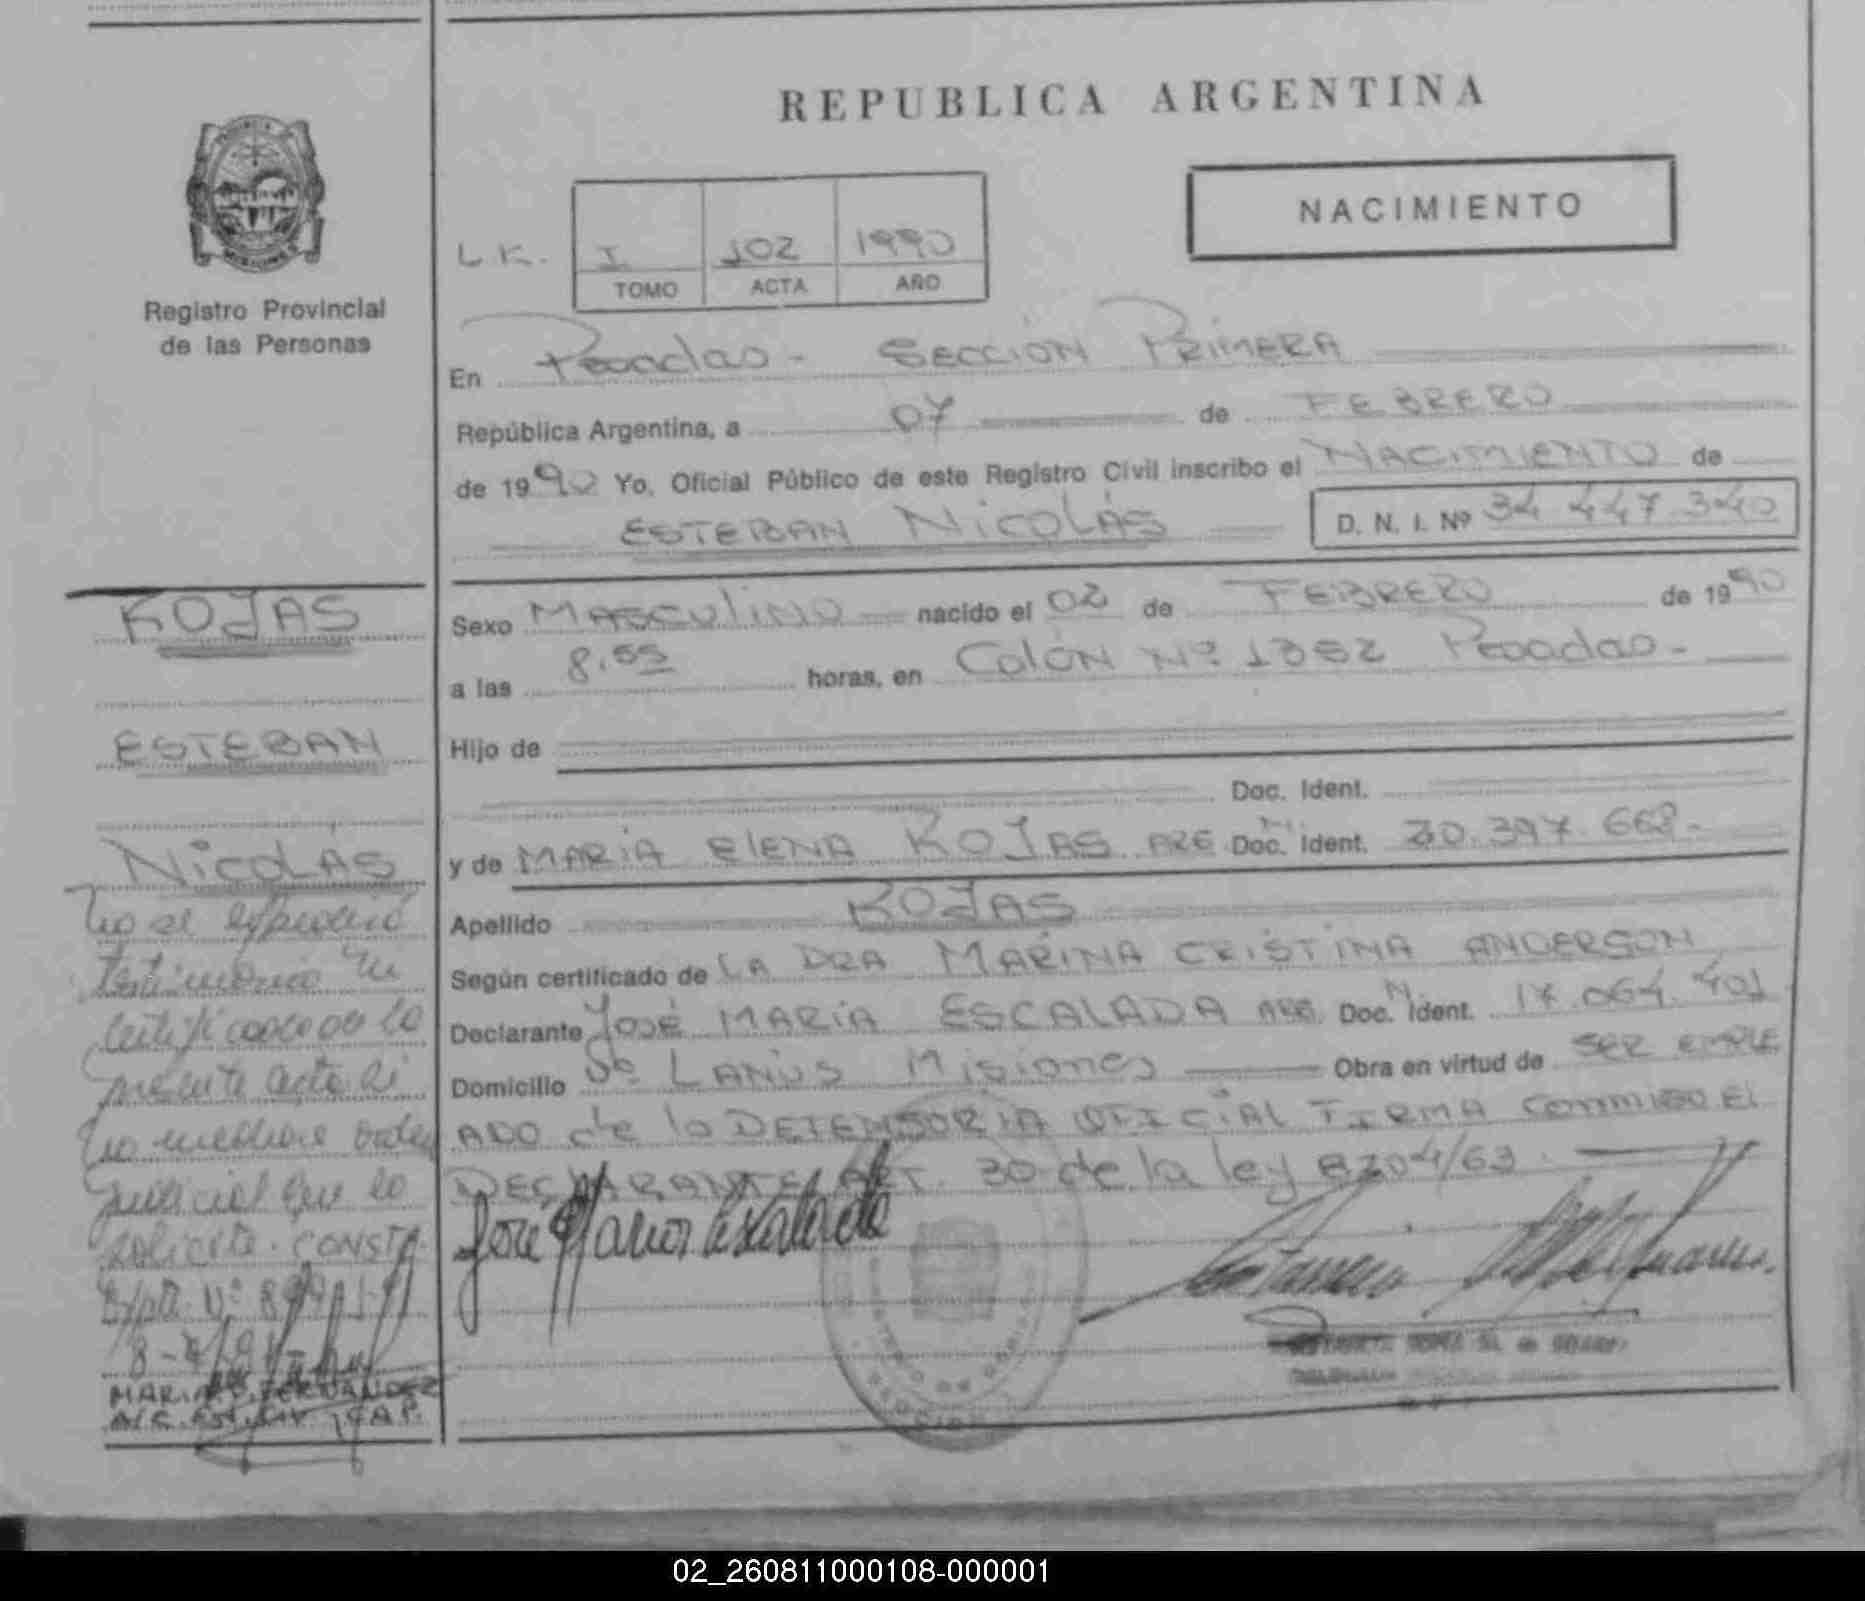 REPUBLICA ARGENTINA
NACIMIENTO
Registro Provincial
de las Personas
L.K. I 102 1990
TOMO ACTA AÑO
En Posadas - SECCION PRIMERA
República Argentina, a 07 de FEBRERO
de 1990 Yo, Oficial Público de este Registro Civil inscribo el NACIMIENTO de
ESTEBAN NICOLÁS D. N. I. Nº 34 447.340
Sexo MASCULINO nacido el 02 de FEBRERO de 1990
a las 8.55 horas, en COLÓN Nº 1352 Posadas -
Hijo de
Doc. Ident.
y de MARIA ELENA ROJAS ARG Doc. Ident. 20.397.668-
Apellido ROJAS
Según certificado de LA DRA MARINA CRISTINA ANDERSON
Declarante JOSÉ MARIA ESCALADA ARG. Doc. Ident. 17.064.401
Domicilio Vª LANUS MISIONES Obra en virtud de SER EMPLE
ADO de la DEFENSORIA OFICIAL FIRMA CONMIGO EL
DECLARANTE ART. 30 de la ley 8204/63.
ROJAS
ESTEBAN
NICOLAS
No se expedirá
testimonio ni
certificado de la
presente acta si
no mediare orden
judicial que lo
solicite. CONSTA
Expte. Nº
MARIA FERNANDEZ
02_260811000108-000001